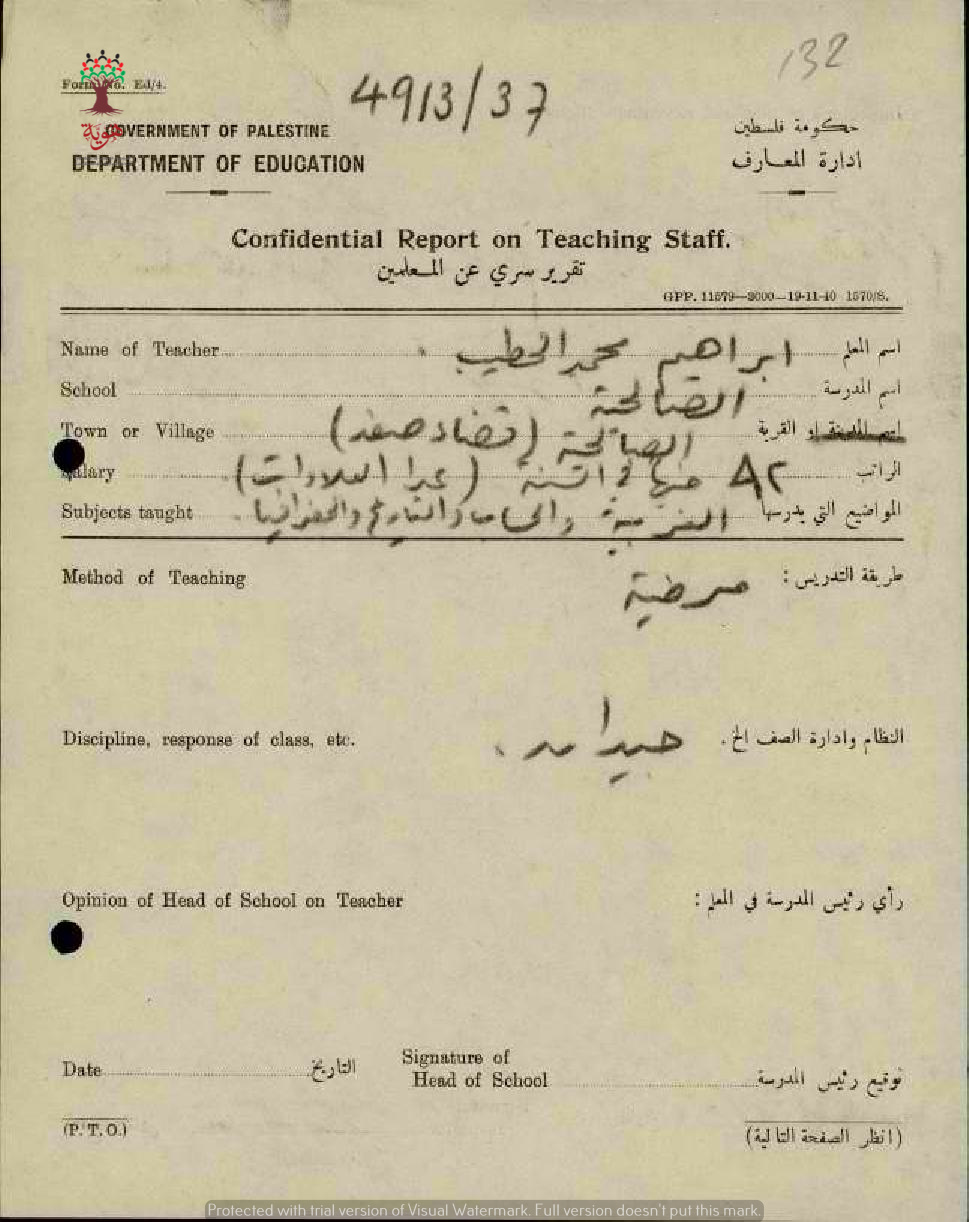 132
Form No. Ed/4.
4913/37
هوية
GOVERNMENT OF PALESTINE
حكومة فلسطين
DEPARTMENT OF EDUCATION
ادارة المعارف
Confidential Report on Teaching Staff.
تقرير سري عن المعلمين
GPP. 11579—2000—19-11-40 1570/S.
Name of Teacher ابراهيم محمد الخطيب اسم المعلم
School الصالحية اسم المدرسة
Town or Village الصالحية (قضاء صفد) اسم المدينة او القرية
Salary ٨٢ جنيها في السنة (عدا العلاوات) الراتب
Subjects taught العربية والحساب والتاريخ والجغرافيا. المواضيع التي يدرسها
Method of Teaching مرضية طريقة التدريس :
Discipline, response of class, etc. جيد النظام وادارة الصف الخ .
Opinion of Head of School on Teacher رأي رئيس المدرسة في المعلم :
Date التاريخ
Signature of
Head of School توقيع رئيس المدرسة
(P. T. O.) (انظر الصفحة التالية)
Protected with trial version of Visual Watermark. Full version doesn't put this mark.